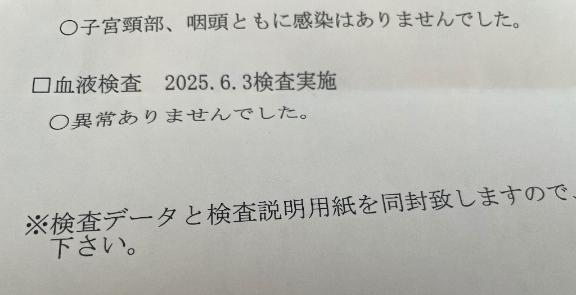 ○子宮頸部、咽頭ともに感染はありませんでした。
□血液検査　2025.6.3検査実施
○異常ありませんでした。
※検査データと検査説明用紙を同封致しますので、
下さい。